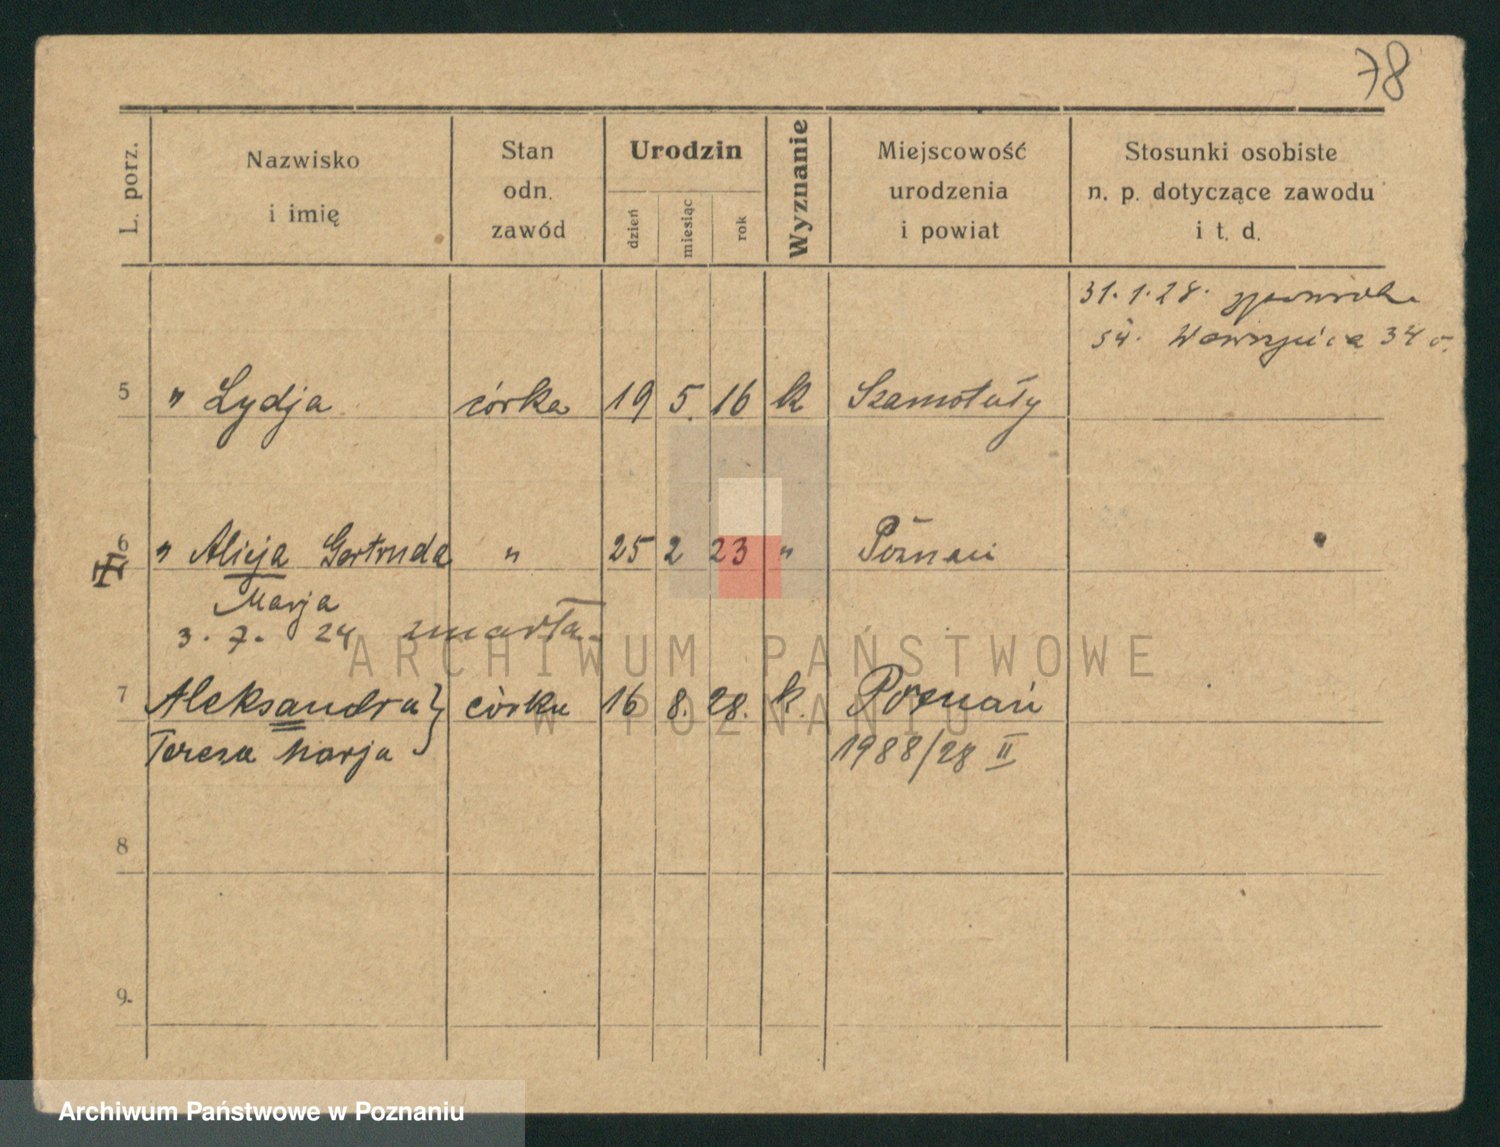 78
L. porz.
Nazwisko
i imię
Stan
odn.
zawód
Urodzin
dzień
miesiąc
rok
Wyznanie
Miejscowość
urodzenia
i powiat
Stosunki osobiste
n. p. dotyczące zawodu
i t. d.
31. 1. 28.
św. Wawrzyńca 34
5 " Lydja córka 19 5. 16 k Szamotuły
6 " Alicja Gertruda " 25 2 23 " Poznań
Marja
3. 7. 24 zmarła.
ARCHIWUM PAŃSTWOWE
W POZNANIU
7 Aleksandra} córka 16 8. 28. k. Poznań
Teresa Marja 1988/28 II
8
9.
Archiwum Państwowe w Poznaniu